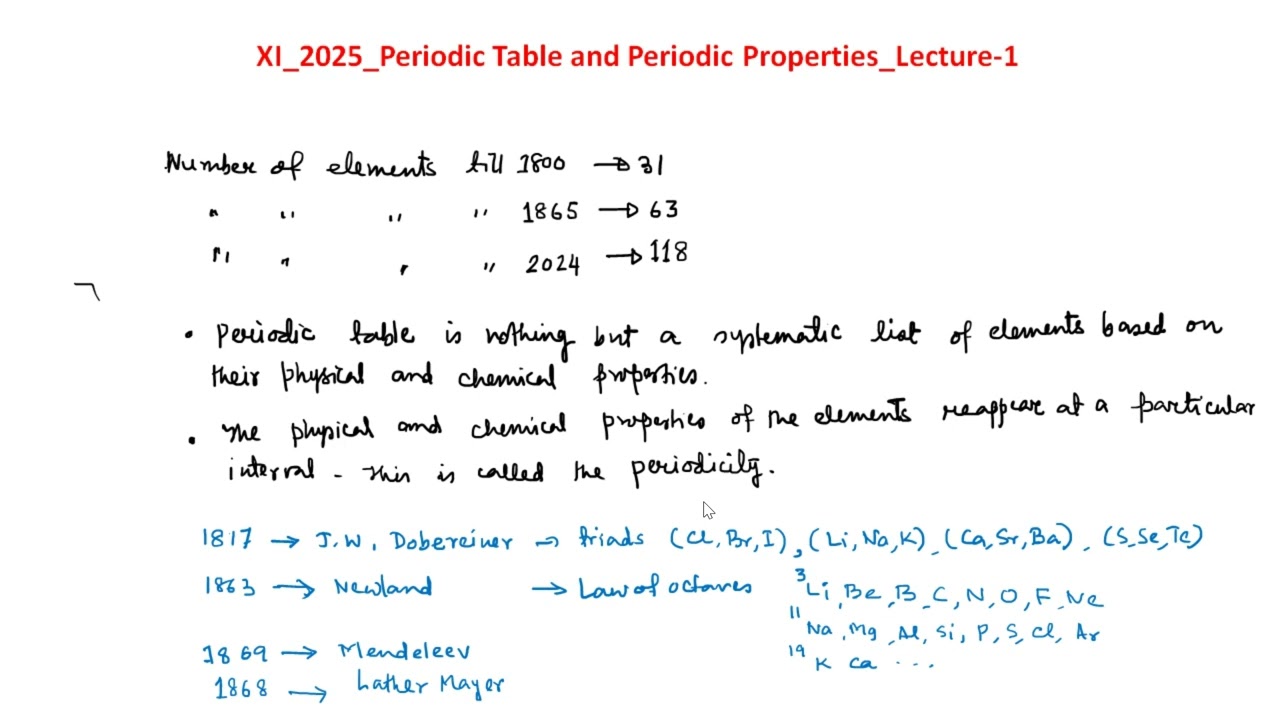 XI_2025_Periodic Table and Periodic Properties_Lecture-1
Number of elements till 1800 → 31
" " " " 1865 → 63
" " " " 2024 → 118
• Periodic table is nothing but a systematic list of elements based on
their physical and chemical properties.
• The physical and chemical properties of the elements reappear at a particular
interval - This is called the periodicity.
1817 → J.W. Dobereiner → triads (Cl, Br, I), (Li, Na, K), (Ca, Sr, Ba), (S, Se, Te)
1863 → Newland → Law of octaves ³Li, Be, B, C, N, O, F, Ne
¹¹Na, Mg, Al, Si, P, S, Cl, Ar
¹⁹K Ca ...
1869 → Mendeleev
1868 → Lather Mayer